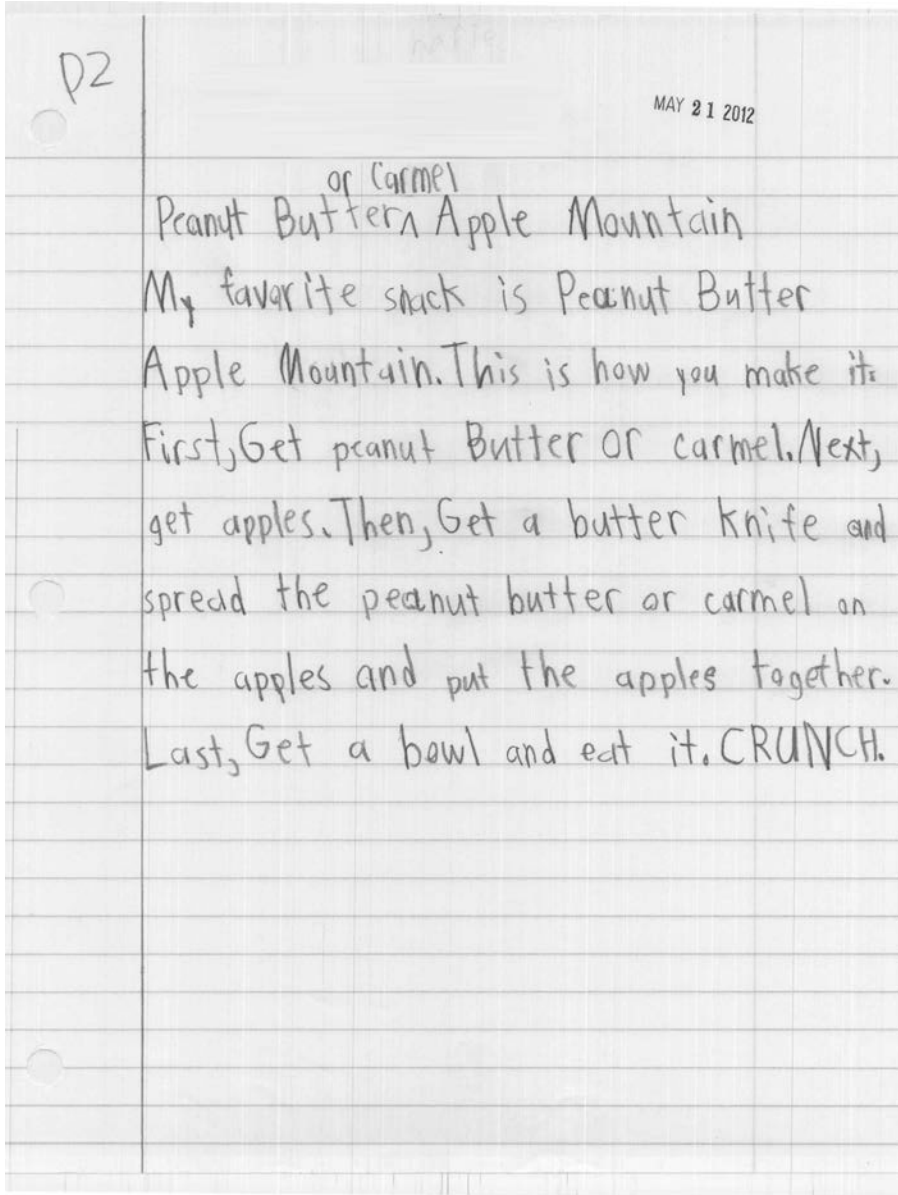 P2
MAY 21 2012
or Carmel
Peanut Butter^ Apple Mountain
My favorite snack is Peanut Butter
Apple Mountain. This is how you make it.
First, Get peanut Butter or carmel. Next,
get apples. Then, Get a butter knife and
spread the peanut butter or carmel on
the apples and put the apples together.
Last, Get a bowl and eat it. CRUNCH.